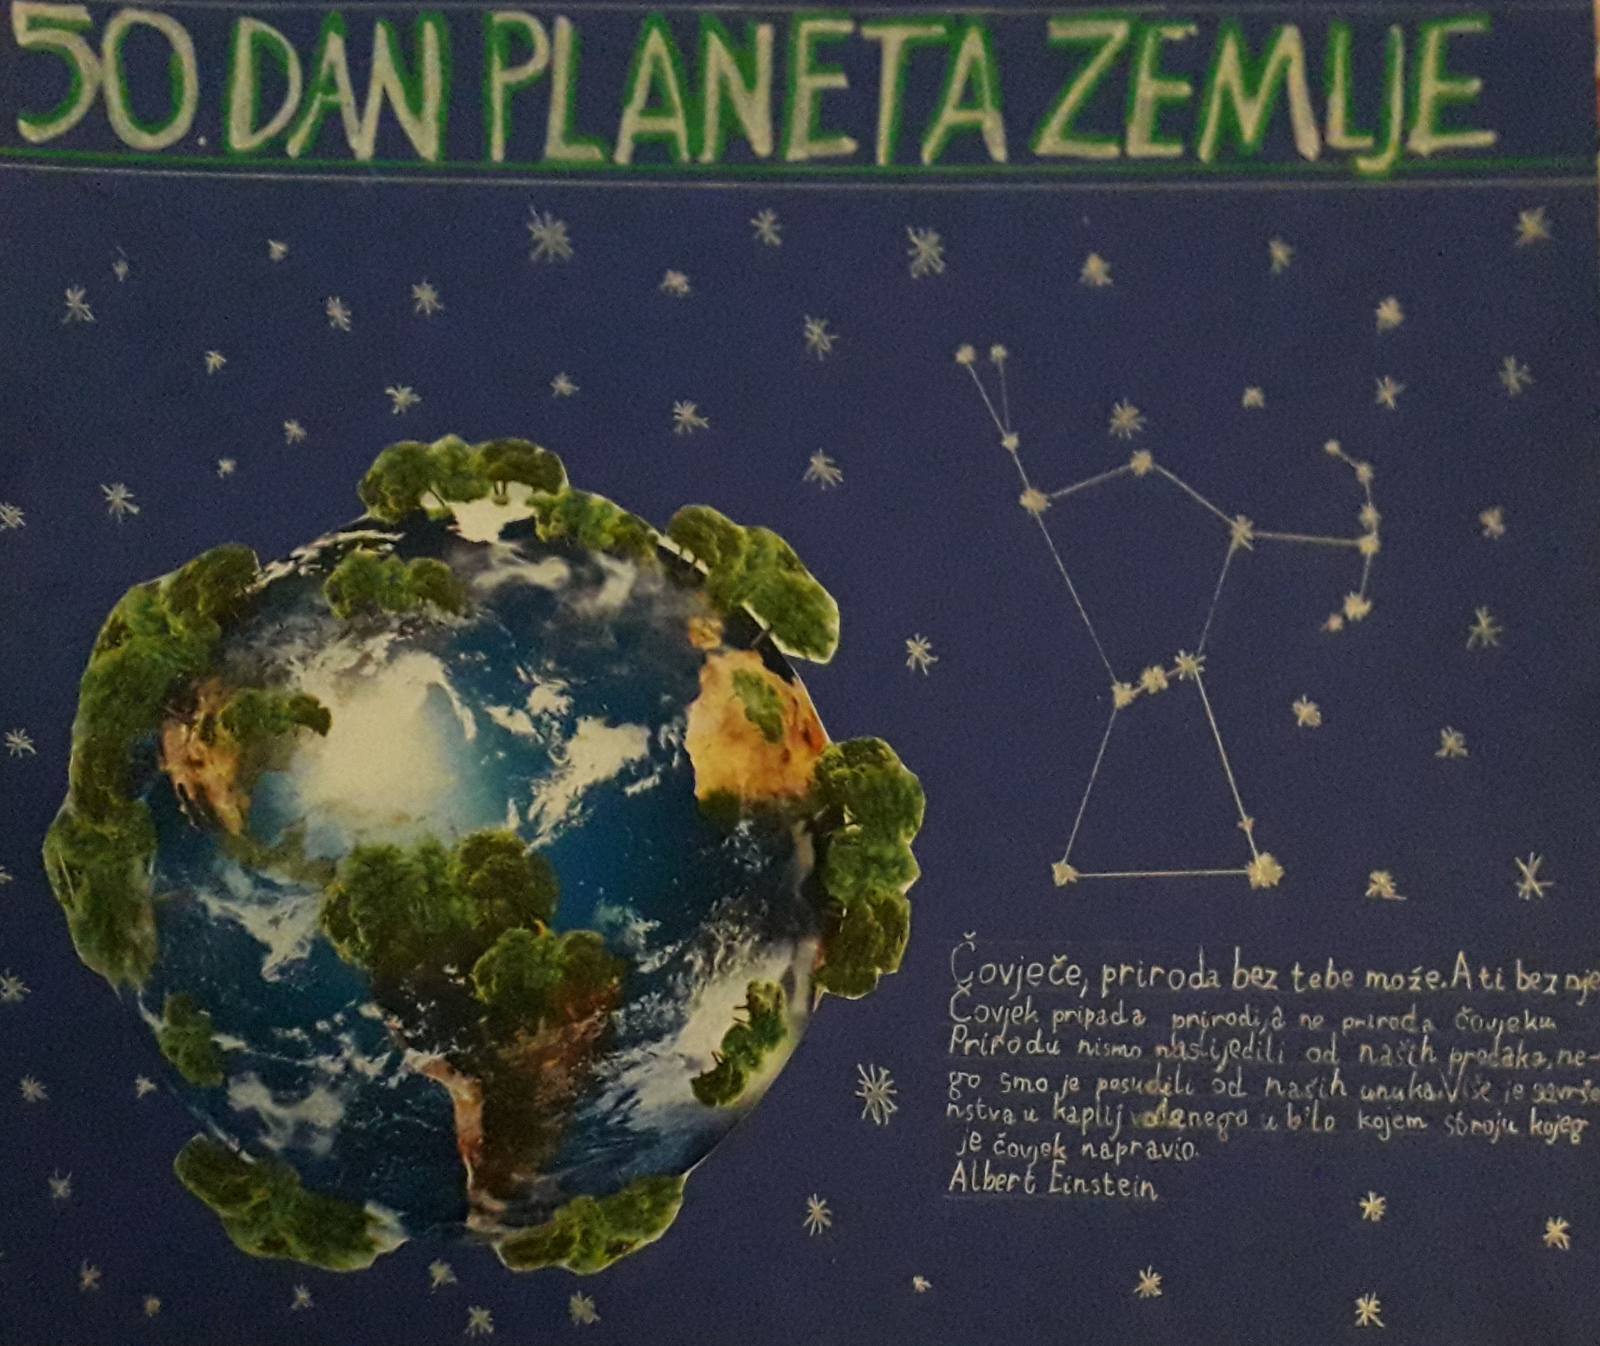 50. DAN PLANETA ZEMLJE
Čovječe, priroda bez tebe može. A ti bez nje
Čovjek pripada prirodi, a ne priroda čovjeku.
Prirodu nismo naslijedili od naših predaka, ne-
go smo je posudili od naših unuka. Više je savrše
nstva u kaplji vodenego u bilo kojem stroju kojeg
je čovjek napravio.
Albert Einstein